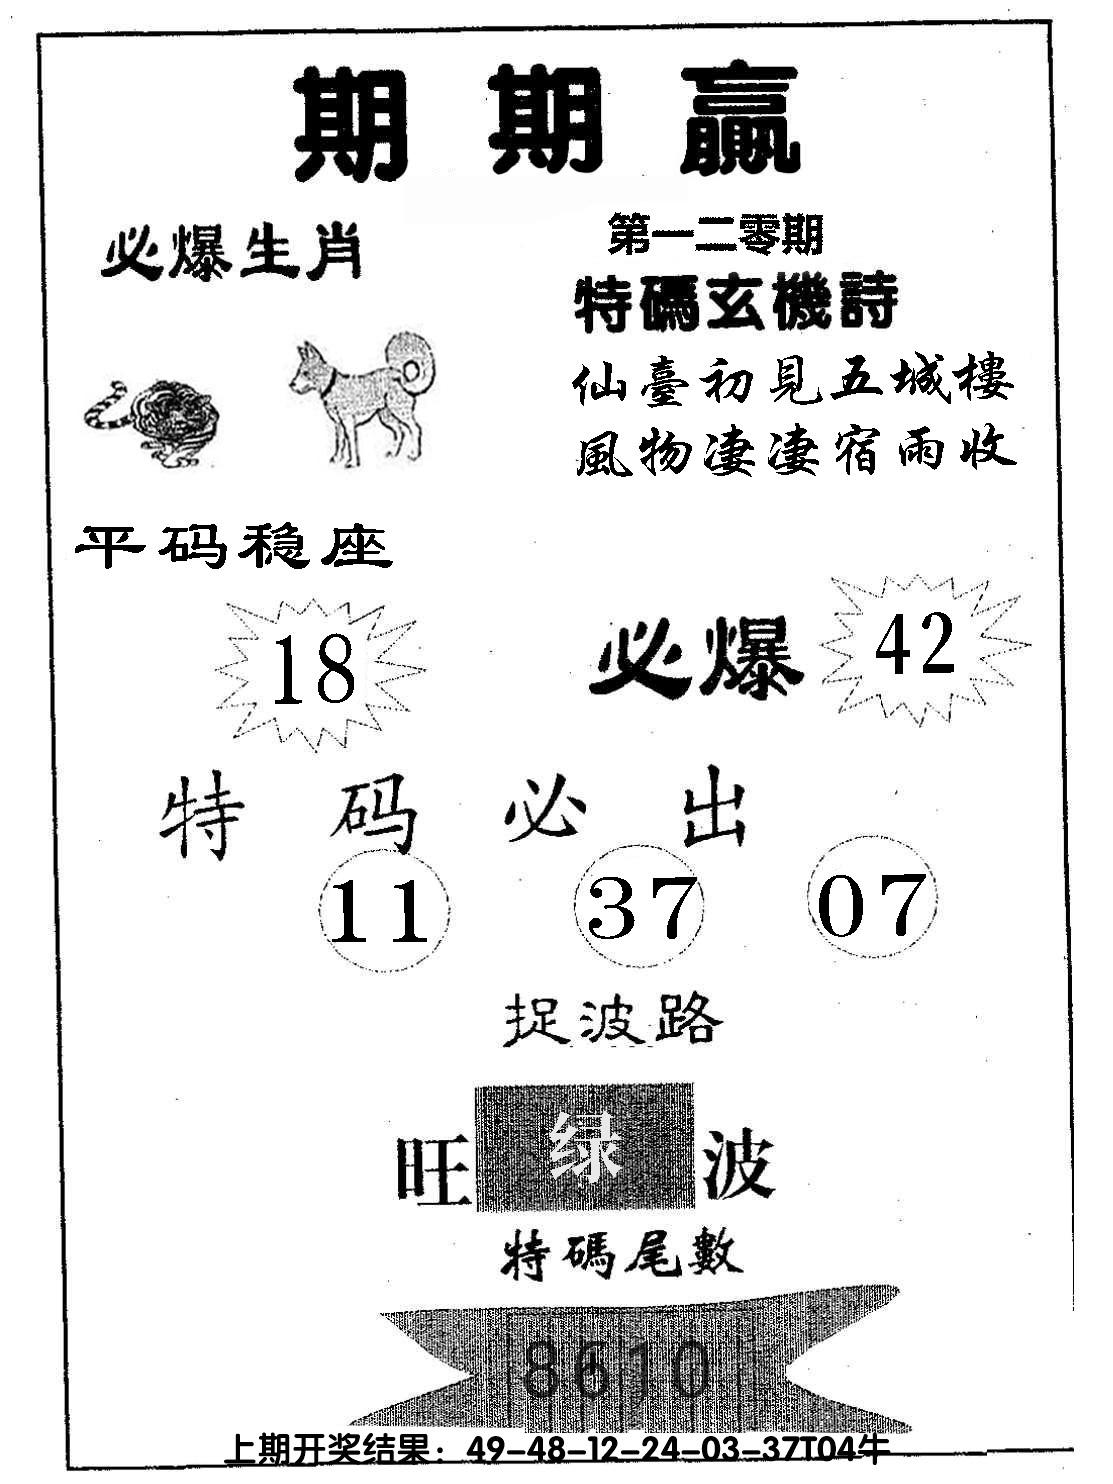 期期赢
必爆生肖
第一二零期
特碼玄機詩
仙臺初見五城樓
風物淒淒宿雨收
平码稳座
18
必爆
42
特码必出
11 37 07
捉波路
旺绿波
特碼尾數
8610
上期开奖结果：49-48-12-24-03-37T04牛